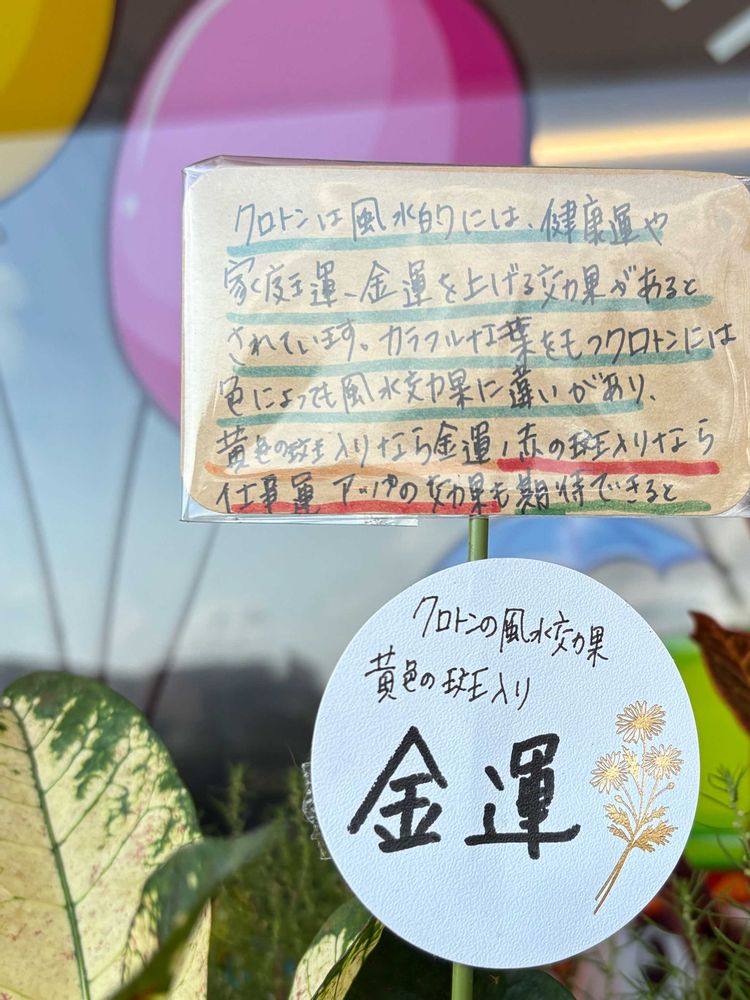 クロトンは風水的には、健康運や
家庭運、金運を上げる効果があると
されています。カラフルな葉をもつクロトンには
色によっても風水効果に違いがあり、
黄色の斑入りなら金運、赤の斑入りなら
仕事運アップの効果も期待できると
クロトンの風水効果
黄色の斑入り
金運